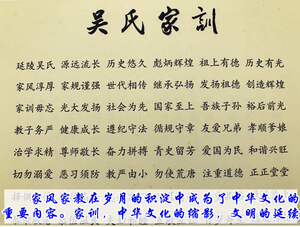 吴氏家训
延陵吴氏 源远流长 历史悠久 彪炳辉煌 祖上有德 历史有光
家风淳厚 家规谨强 世代相传 继承弘扬 发扬祖德 创造辉煌
家训毋忘 光大发扬 社会为先 国家至上 吾族子孙 裕后前光
教子务严 健康成长 遵纪守法 循规守章 友爱兄弟 孝顺爹娘
治学求精 尊师敬长 奋力拼搏 青史留芳 爱国为民 和谐兴旺
切勿溺爱 恶习须防 有理有
勿使荒唐 注重道德 正正堂堂
家风家教在岁月的积淀中成为了中华文化的
重要内容。家训，中华文化的缩影，文明的延续